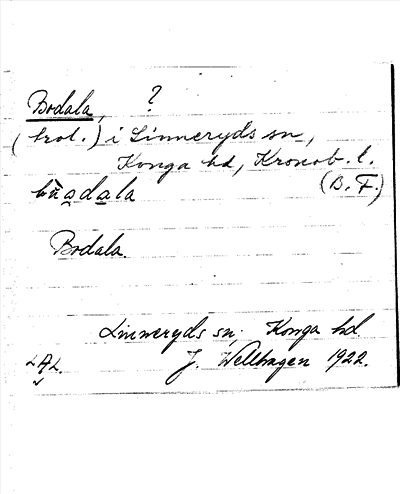 Bodala, ?
(trol.) i Linneryds sn,
Konga hd, Kronob. l.
(B. F.)
Bodala.
Linneryds sn. Konga hd
LAL. J. Wellhagen 1922.